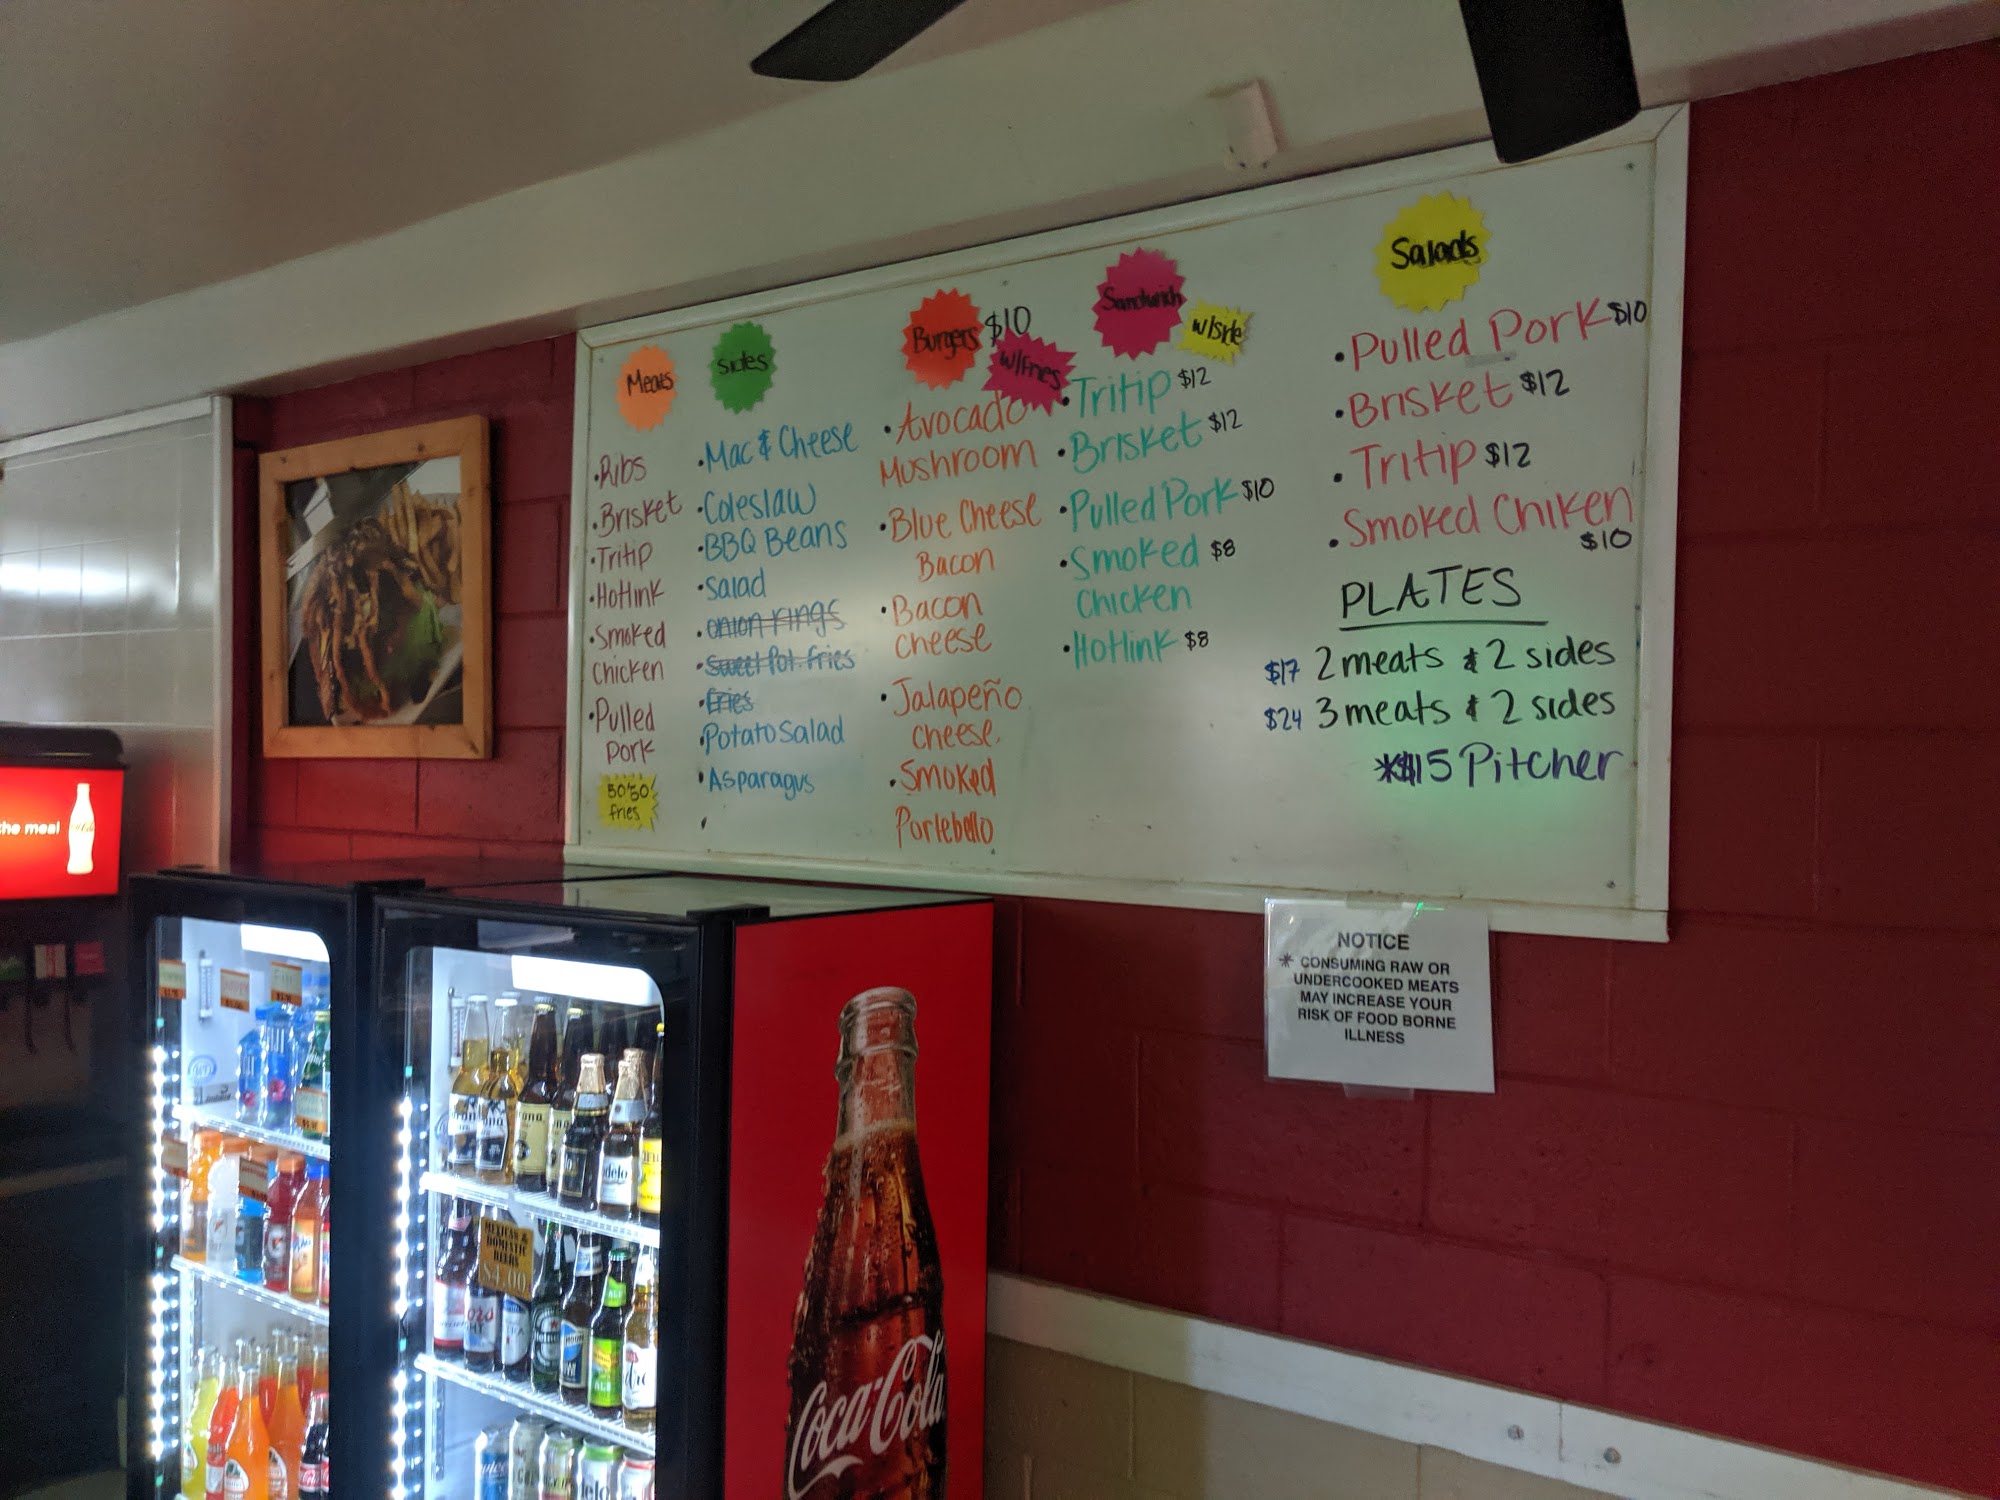 Meats
•Ribs
•Brisket
•Tritip
•Hotlink
•Smoked
Chicken
•Pulled
Pork
50/50
fries
Sides
•Mac & Cheese
•Coleslaw
•BBQ Beans
•Salad
•onion rings
•Sweet Pot. fries
•Fries
•Potato Salad
•Asparagus
Burgers $10
w/Fries
•Avocado
Mushroom
•Blue Cheese
Bacon
•Bacon
cheese
•Jalapeño
cheese
•Smoked
Portebello
Sandwich
w/Side
•Tritip $12
•Brisket $12
•Pulled Pork $10
•Smoked $8
Chicken
•Hotlink $8
Salads
•Pulled Pork $10
•Brisket $12
•Tritip $12
•Smoked Chiken
$10
PLATES
$17 2 meats & 2 sides
$24 3 meats & 2 sides
*$15 Pitcher
NOTICE
* CONSUMING RAW OR
UNDERCOOKED MEATS
MAY INCREASE YOUR
RISK OF FOOD BORNE
ILLNESS
the meal
MEXICAN &
DOMESTIC
BEERS
$4.00
Coca-Cola